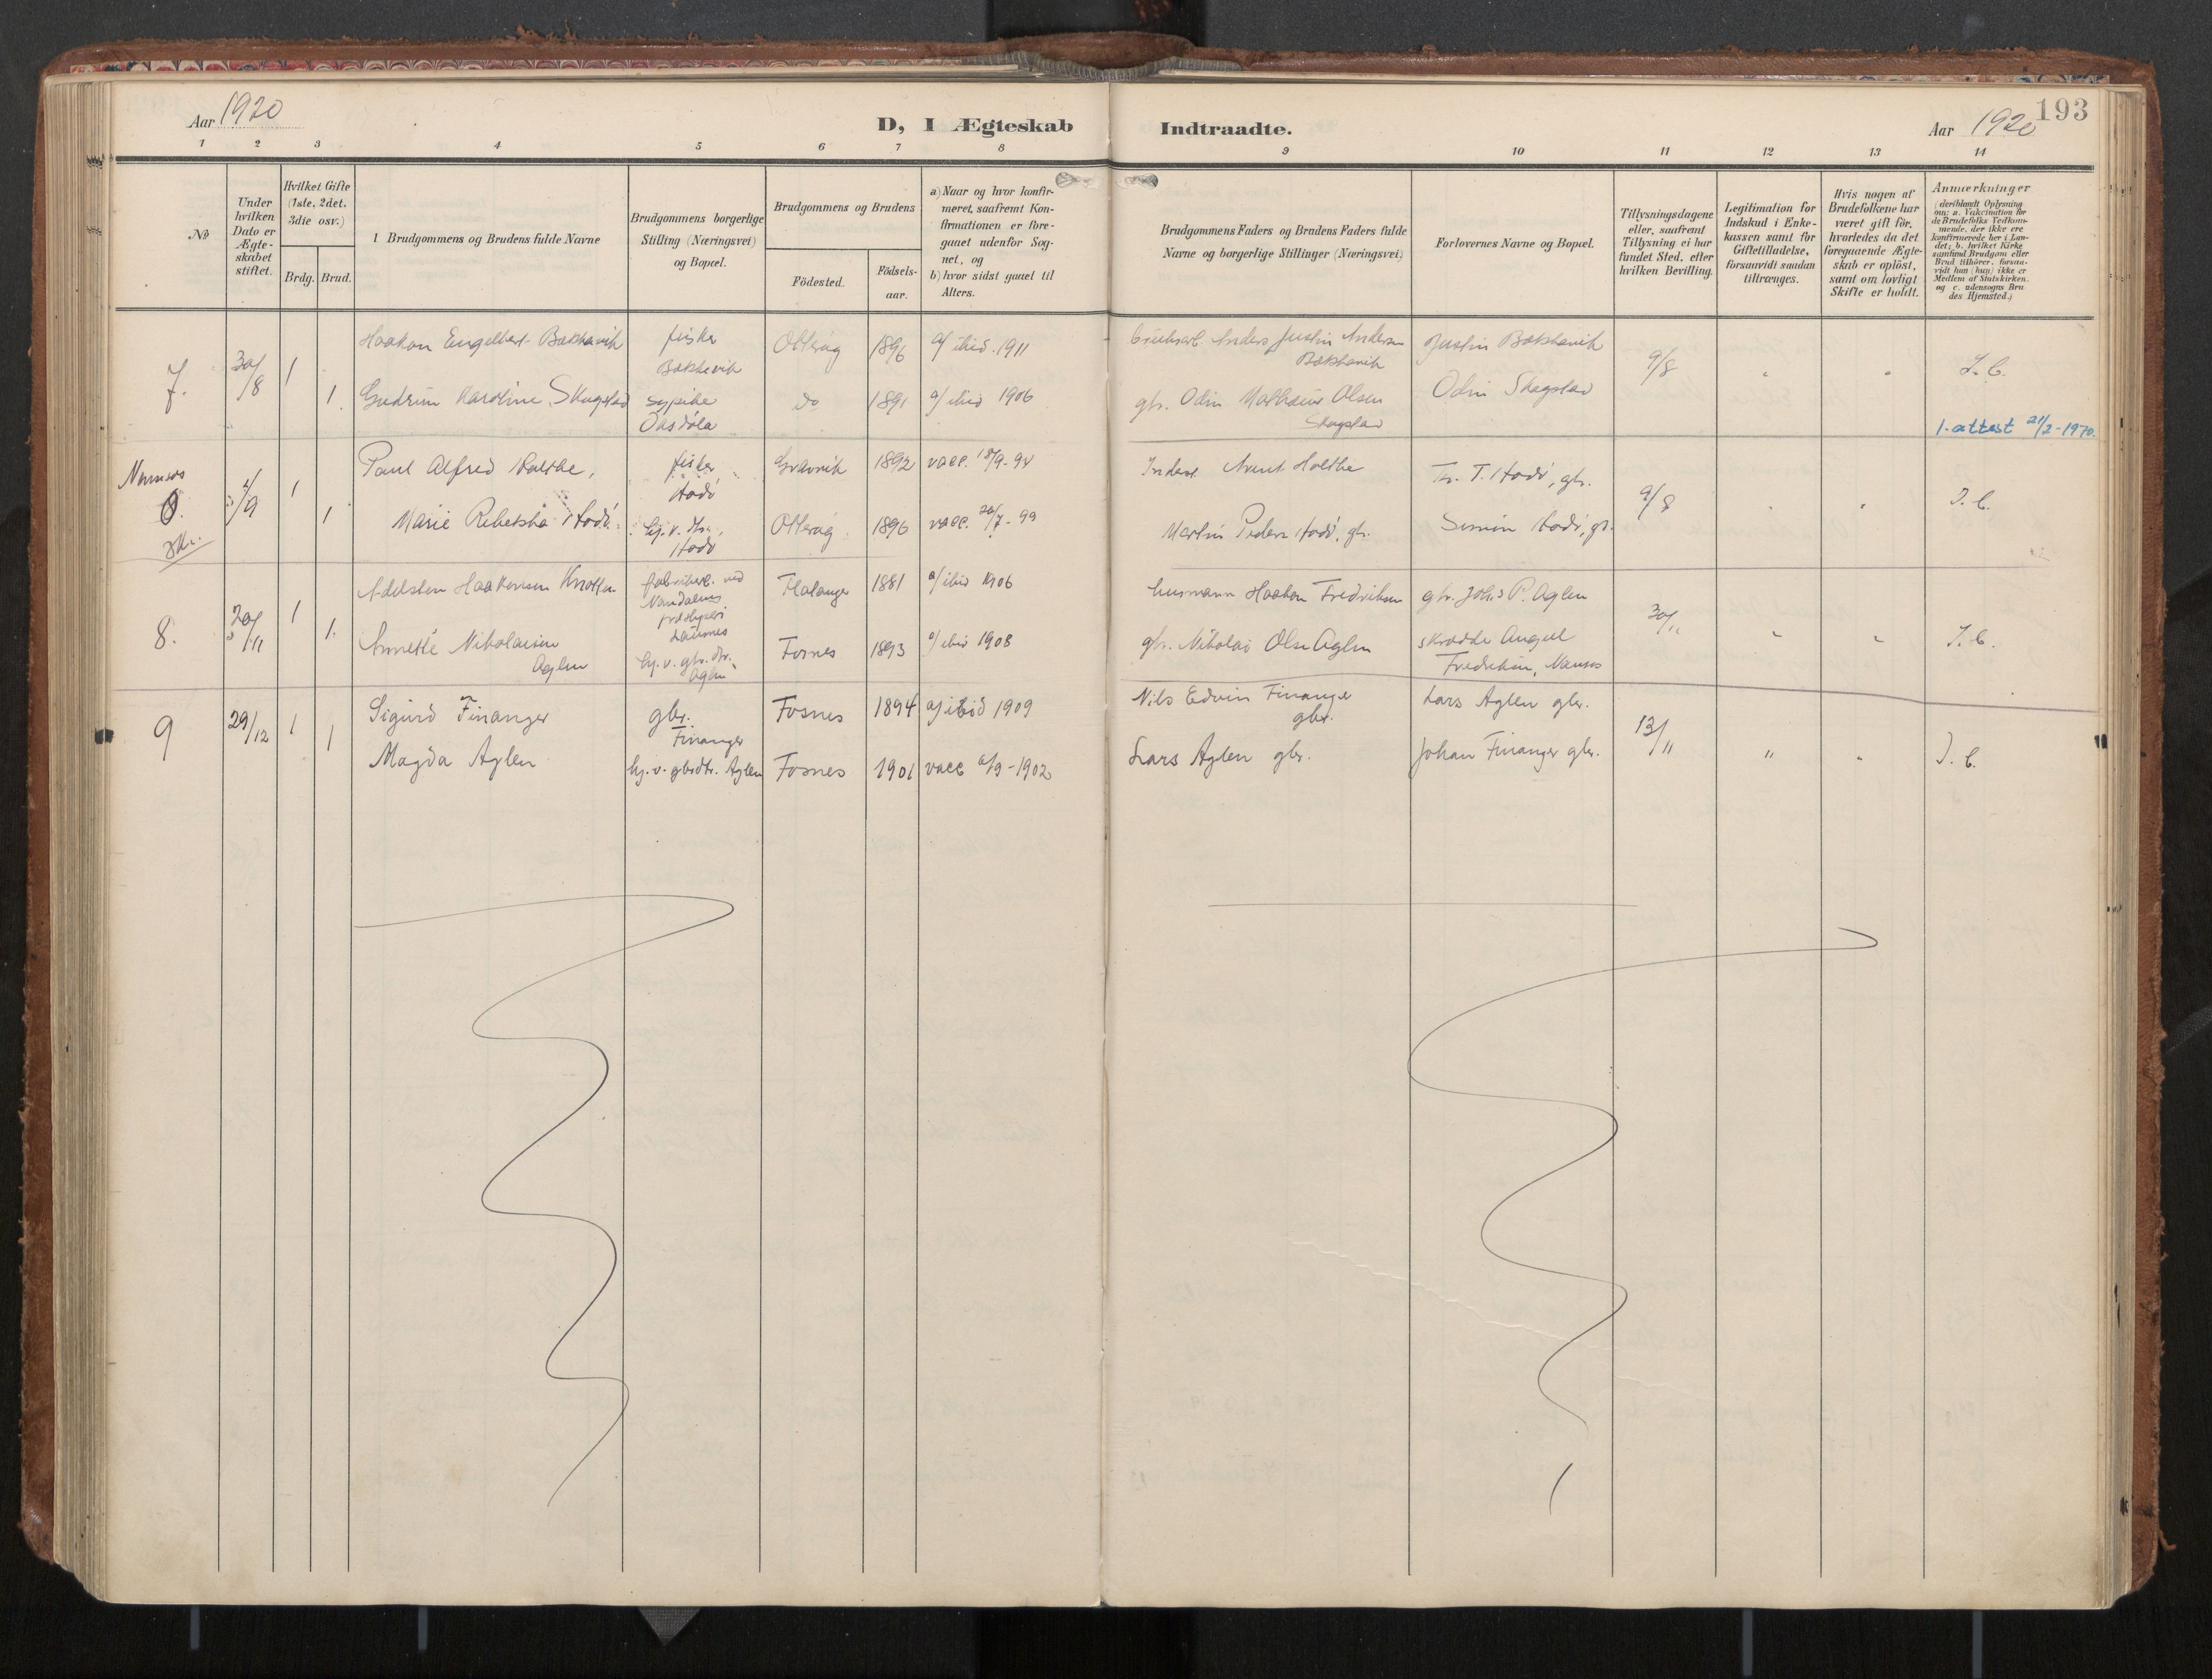 Aar 1920
D, I Ægteskab
Indtraadte.
Aar 1920
193
1 2 3 4 5 6 7 8 9 10 11 12 13 14
No
Under hvilken Dato er Ægteskabet stiftet.
Hvilket Gifte (1ste, 2det. 3die osv.)
Brdg. Brud.
1 Brudgommens og Brudens fulde Navne
Brudgommens borgerlige Stilling (Næringsvei) og Bopæl.
Brudgommens og Brudens
Födested.
Födselsaar.
a) Naar og hvor konfirmeret, saafremt Konfirmationen er foregaaet udenfor Sognet, og
b) hvor sidst gaaet til Alters.
Brudgommens Faders og Brudens Faders fulde Navne og borgerlige Stillinger (Næringsvei)
Forlovernes Navne og Bopæl.
Tillysningsdagene eller, saafremt Tillysning ei har fundet Sted, efter hvilken Bevilling.
Legitimation for Indskud i Enkekassen samt for Giftetilladelse, forsaavidt saadan tiltrænges.
Hvis nogen af Brudefolkene har været gift för, hvorledes da det foregaaende Ægteskab er oplöst, samt om lovligt Skifte er holdt.
Anmærkninger (deriblandt Oplysning om: a. Vakcination for de Brudefolks Vedkommende, der ikke ere konfirmerede her i Landet; b. hvilket Kirkesamfund Brudgom eller Brud tilhörer, forsaavidt han (hun) ikke er Medlem af Statskirken. og c. udensogns Brudes Hjemsted.)
7. 30/8 1 Haakon Engelbert Bakkavik fisker Otterøy 1896 a/ ibid. 1911 Anders Justin Andersen Justin Bakkavik 9/8 " " I. C.
Bakkavik
Bakkavik
1 Gudrun Karoline Skagstad sypike do 1891 a/ ibid 1906 gbr. Odin Olsen Odin Skagstad
Skagstad
1. attest 21/2-1970.
Namsos
Paul Alfred Holthe, fisker Gravvik 1892 vacc. 18/9-94 Inderst Arent Holthe
1 1 Hodø 9/8 " " I. C.
Marie Rebekka Hodø Otterøy 1896 vacc. Martin Hodø, gbr. Simon Hodø, gbr.
Hodø
8. 1 Adelsten Haakonsen 1881 a/ ibid 1906 husmann Haakon Fredriksen gbr. Johs P. Aglen
Flatanger
1 Annette Nikolaisen Fosnes 1893 a/ ibid 1908 gbr. Nikolai Olsen Aglen skrædder 30/11 " " I. C.
Aglen hj. v. gbr. dtr. Aglen
Fredriksen, Namsos
9 29/12 1 Sigurd Finanger gbr. Fosnes 1894 a/ ibid 1909 Nils Edvin Finanger Lars Aglen gbr. 13/11 " " I. C.
Finanger gbr.
1 Magda Aglen hj. v. gbrdtr. Aglen Fosnes 1901 vacc 6/9-1902 Lars Aglen gbr. Johan Finanger gbr.